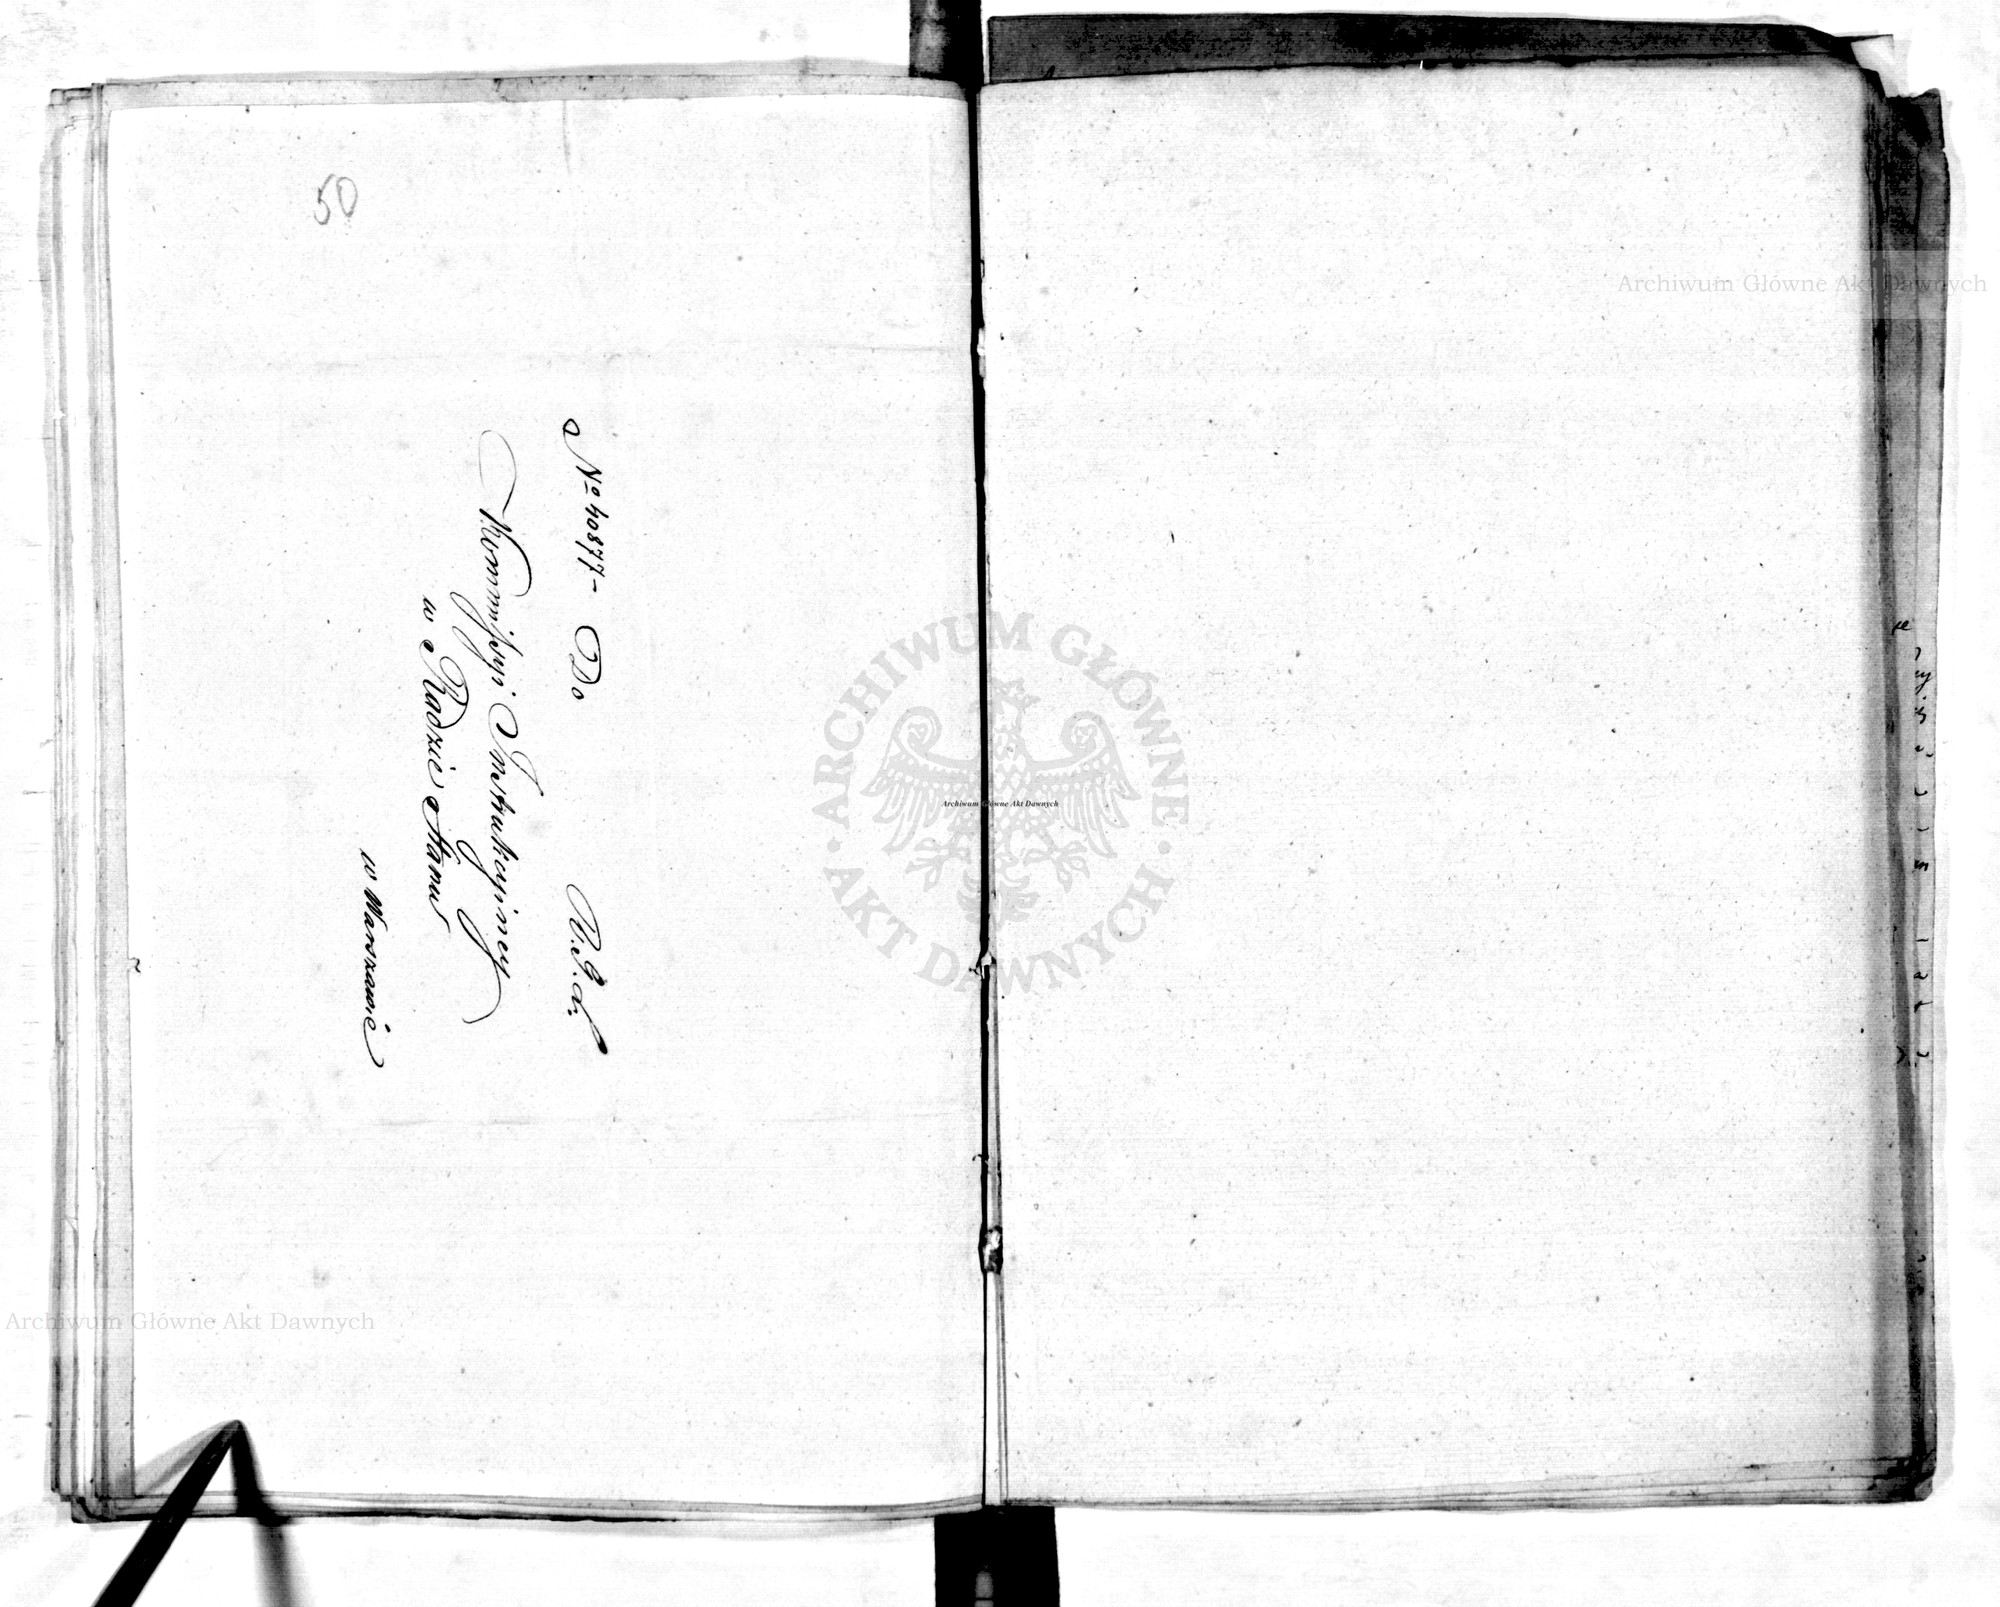 50
No 40877- Do
Kommissyi Instrukcyiney
w Radzie Stanu
w Warszawie
Archiwum Główne Akt Dawnych
Archiwum Główne Akt Dawnych
ARCHIWUM GŁÓWNE
AKT DAWNYCH
Archiwum Główne Akt Dawnych